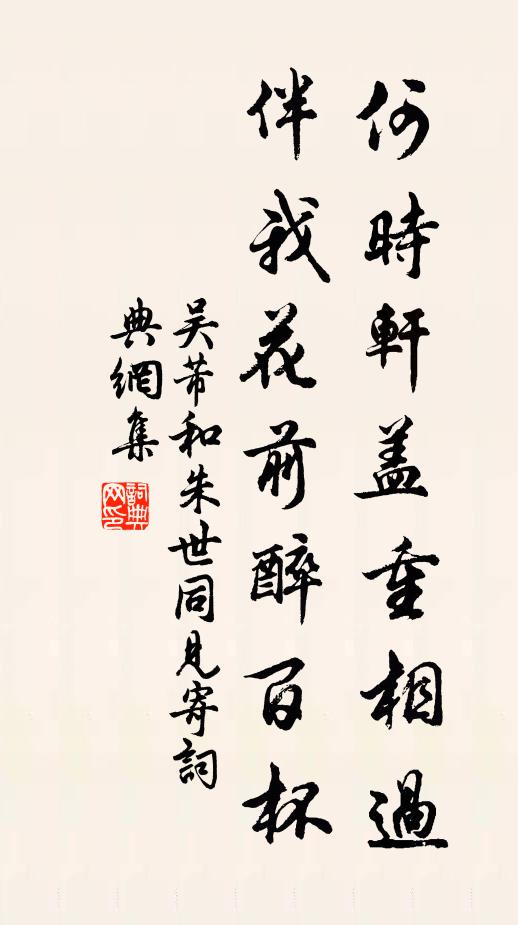 何時軒蓋重相過
伴我花前醉百杯
吴芾和朱世同見寄詞
典網集
詞典网印